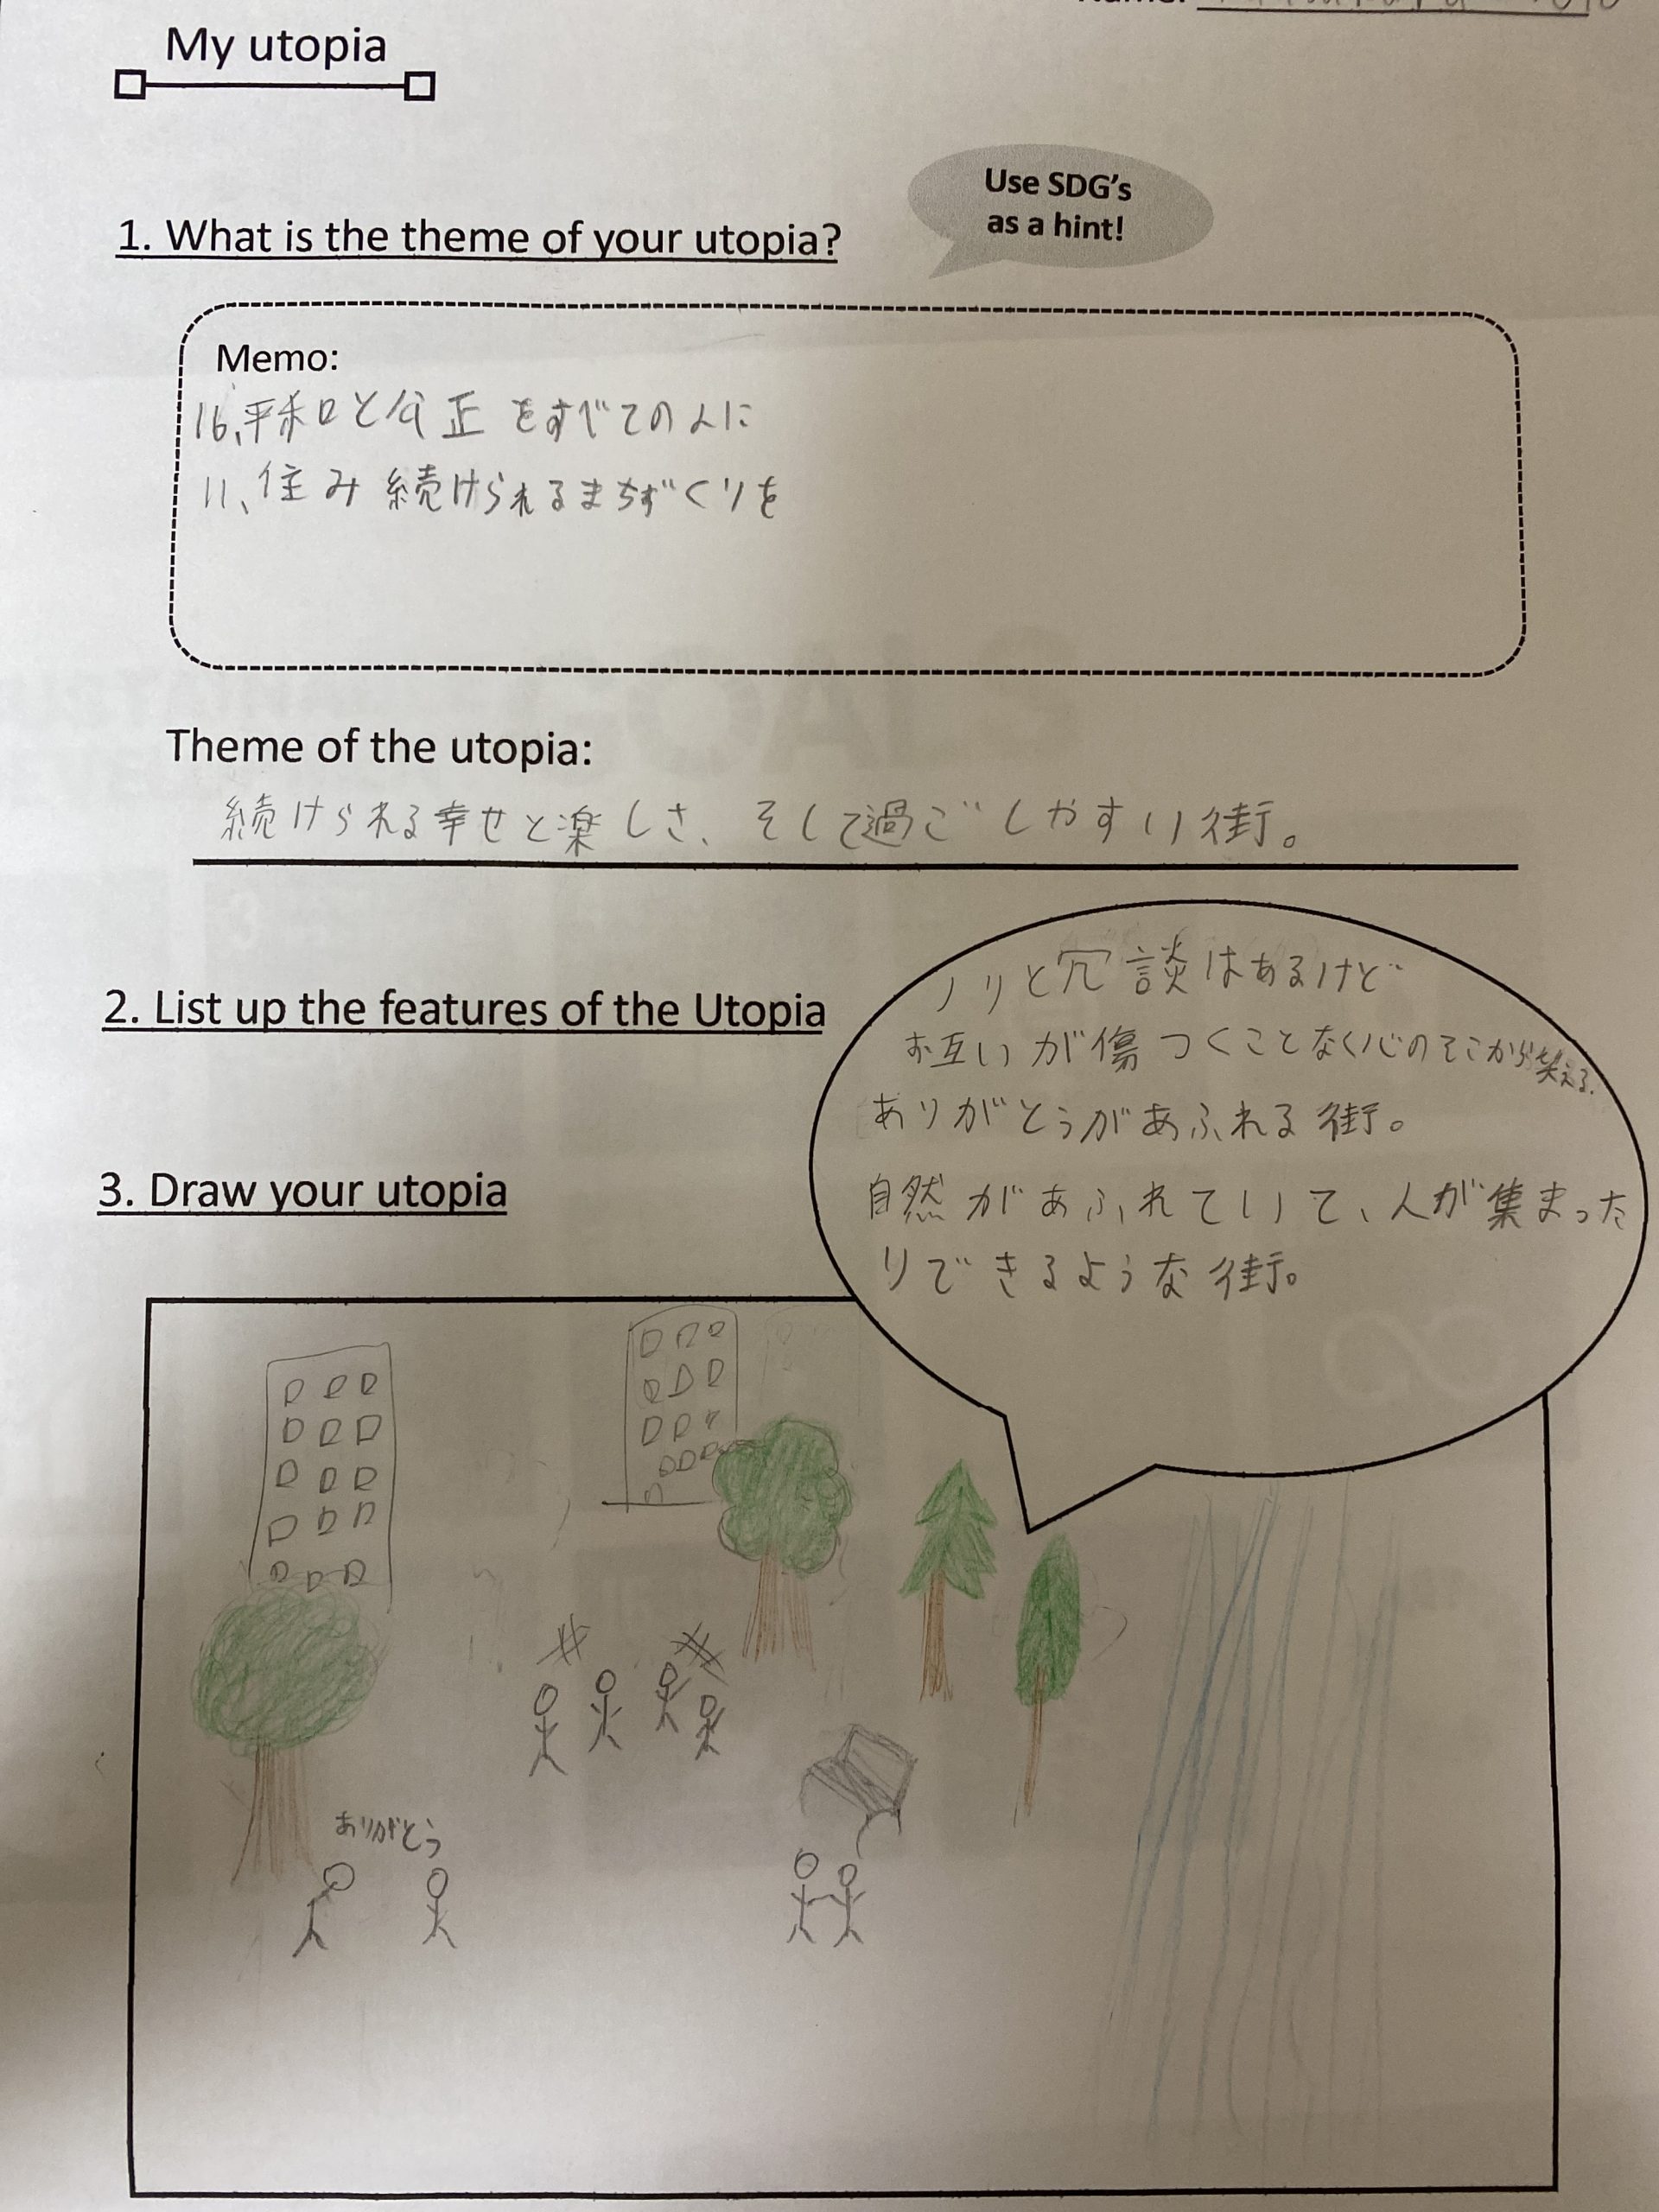 Name:
My utopia
Use SDG's
as a hint!
1. What is the theme of your utopia?
Memo:
16、平和と公正をすべての人に
11、住み続けられるまちずくりを
Theme of the utopia:
続けられる幸せと楽しさ、そして過ごしやすい街。
2. List up the features of the Utopia
ノリと冗談はあるけど
お互いが傷つくことなく心のそこから笑える。
ありがとうがあふれる街。
自然があふれていて、人が集まった
りできるような街。
3. Draw your utopia
ありがとう